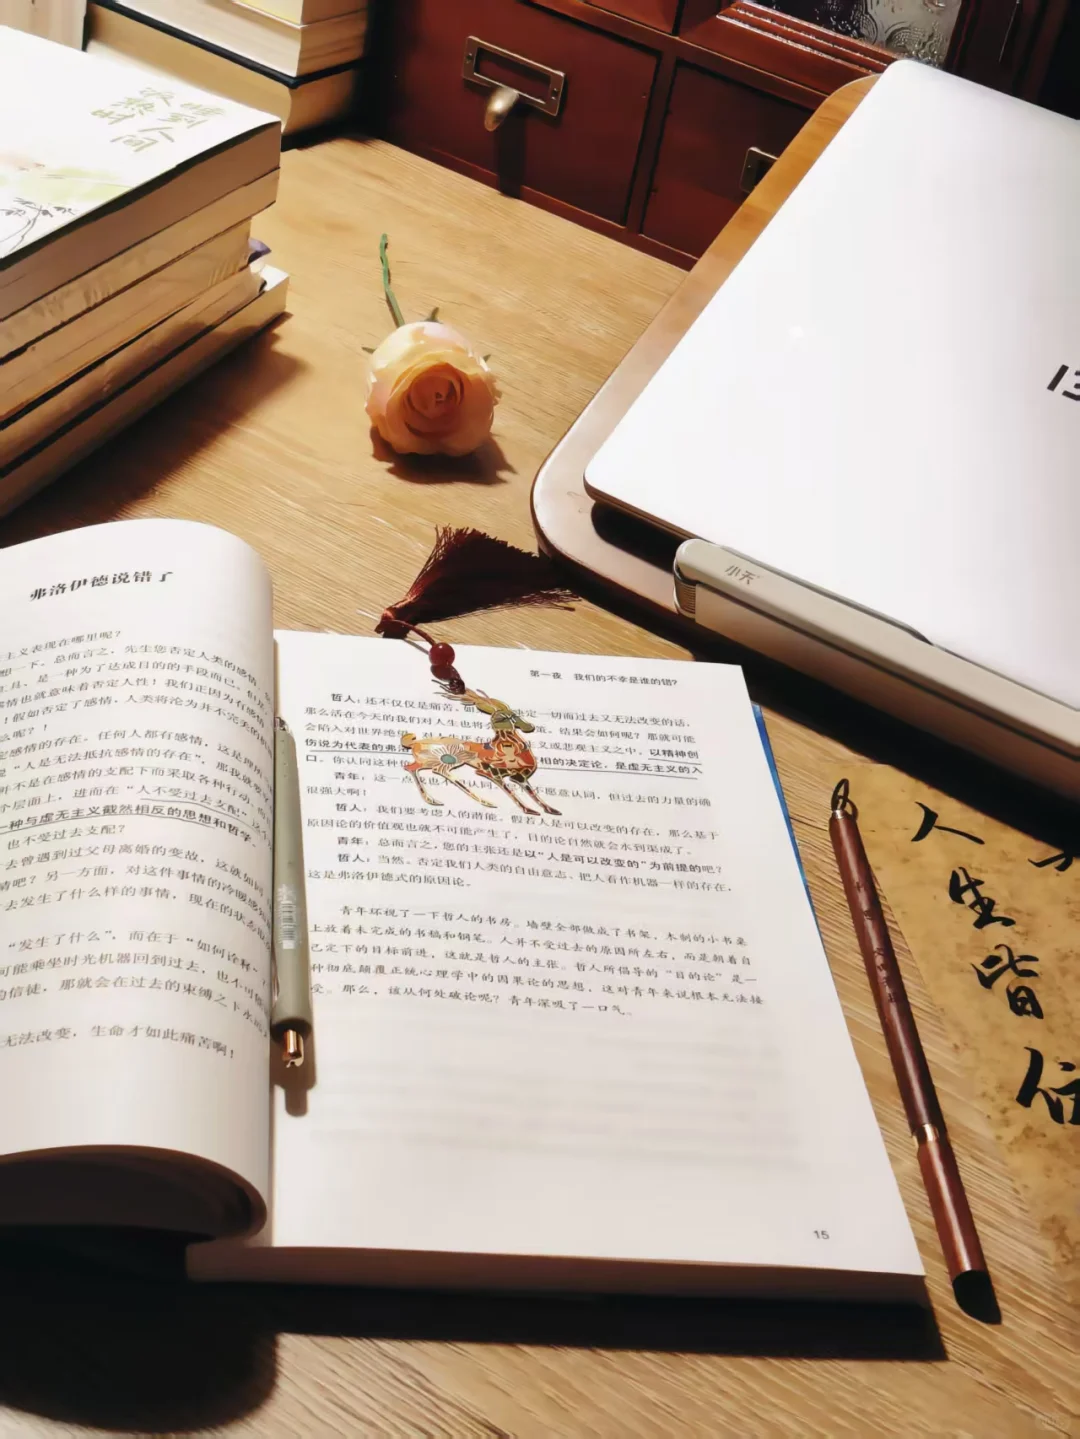 弗洛伊德说错了
主义表现在哪里呢？
想一下。总而言之，先生您否定人类的感情，
工具，是一种为了达成目的的手段而已。但是
情也就意味着否定人性！我们正因为有感情
！假如否定了感情，人类将沦为并不完美的机
么呢？！
定感情的存在。任何人都有感情，这是理所
“人是无法抵抗感情的存在”，那我就要
并不是在感情的支配下而采取各种行动。而
个层面上，进而在“人不受过去支配”这个
一种与虚无主义截然相反的思想和哲学。
也不受过去支配？
去曾遇到过父母离婚的变故，这就如同
情吧？另一方面，对这件事情的冷暖感知
去发生了什么样的事情，现在的状态取
“发生了什么”，而在于“如何诠释”
可能乘坐时光机器回到过去，也不可能
的信徒，那就会在过去的束缚之下永远
无法改变，生命才如此痛苦啊！
第一夜 我们的不幸是谁的错？
哲人：还不仅仅是痛苦。如 决定一切而过去又无法改变的话，
那么活在今天的我们对人生也将会 策。结果会如何呢？那就可能
会陷入对世界绝望、对人生厌弃的 主义或悲观主义之中。以精神创
伤说为代表的弗洛 相的决定论，是虚无主义的入
口。你认同这种价
青年：这一点我也不想认同， 不愿意认同，但过去的力量的确
很强大啊！
哲人：我们要考虑人的潜能。假若人是可以改变的存在，那么基于
原因论的价值观也就不可能产生了，目的论自然就会水到渠成了。
青年：总而言之，您的主张还是以“人是可以改变的”为前提的吧？
哲人：当然。否定我们人类的自由意志、把人看作机器一样的存在，
这是弗洛伊德式的原因论。
青年环视了一下哲人的书房。墙壁全部做成了书架，木制的小书桌
上放着未完成的书稿和钢笔。人并不受过去的原因所左右，而是朝着自
己定下的目标前进，这就是哲人的主张。哲人所倡导的“目的论”是一
种彻底颠覆正统心理学中的因果论的思想，这对青年来说根本无法接
受。那么，该从何处破论呢？青年深吸了一口气。
15
小天
人
生
皆